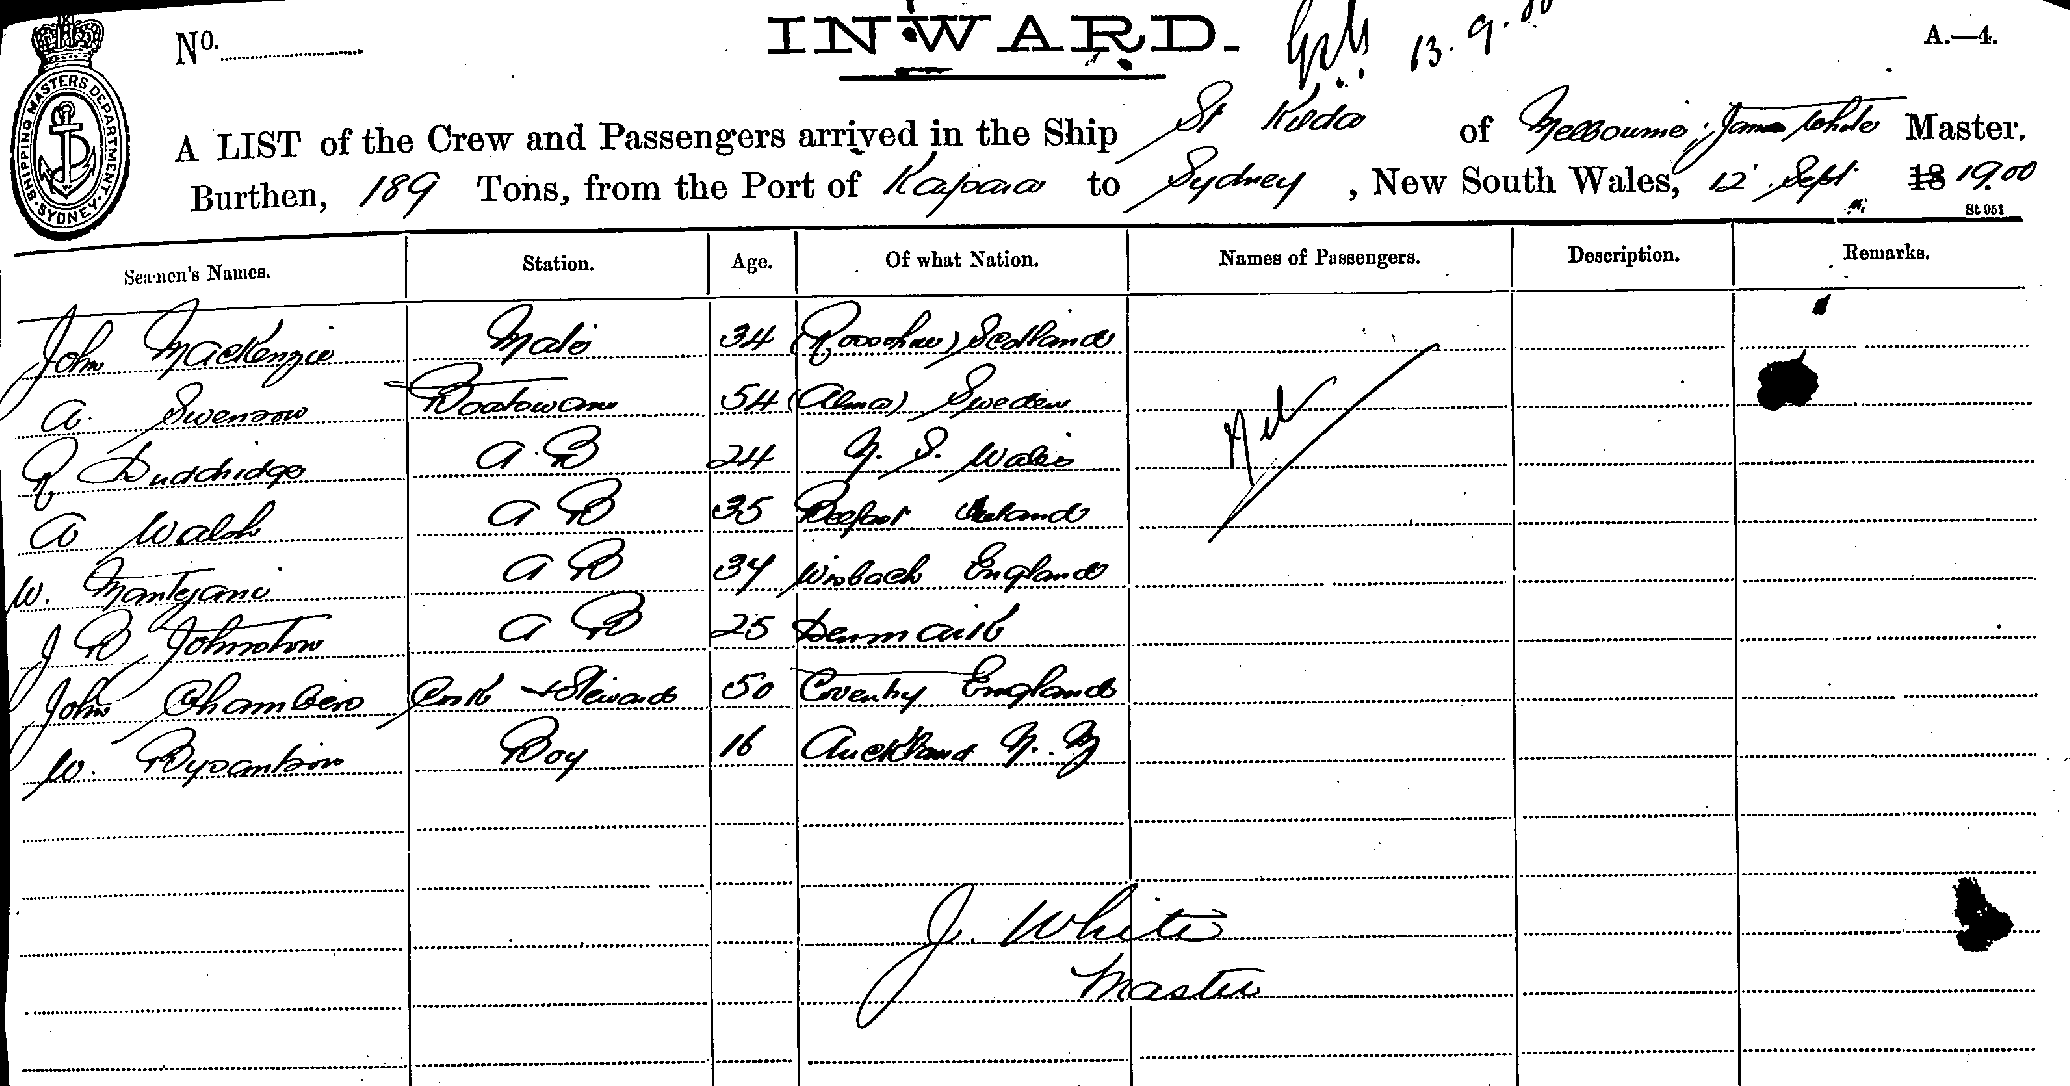 No.
INWARD.
13.9.00
A.—4.
SHIPPING MASTERS DEPARTMENT SYDNEY
A LIST of the Crew and Passengers arrived in the Ship St Kilda of Melbourne, James White Master.
Burthen, 189 Tons, from the Port of Kaipara to Sydney, New South Wales, 12 Sept 18 1900
St 051
Seamen's Names. Station. Age. Of what Nation. Names of Passengers. Description. Remarks.
John MacKenzie Mate 34 (Rosshire) Scotland
A. Swenson Boatswain 54 (Alma) Sweden Nil
R A.B 24 N. S. Wales
A Walsh A B 35 Belfast Ireland
W. A B 34 Wisbach England
J B Johnston A B 25 Denmark
John Chambers Cook + Steward 50 Coventry England
W. Boy 16 Auckland N.Z
J. White
Master